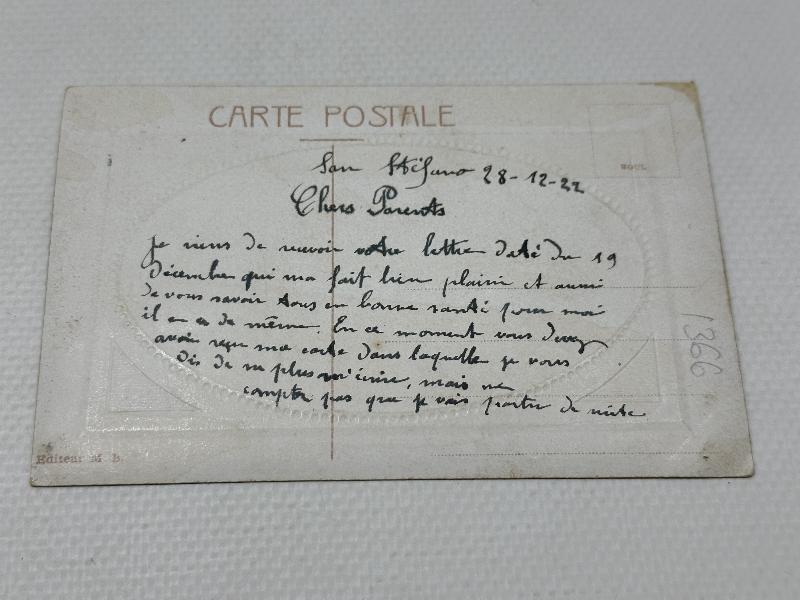 CARTE POSTALE
San Stéfano 28-12-22
Chers Parents
Je viens de recevoir votre lettre daté du 19
décembre qui ma fait bien plaisir et aussi
de vous savoir tous en bonne santé pour moi
il en es de même. En ce moment vous devez
avoir reçu ma carte dans laquelle je vous
dis de ne plus m'écrire, mais ne
compte pas que je vais partir de suite
Editeur M. B.
1366